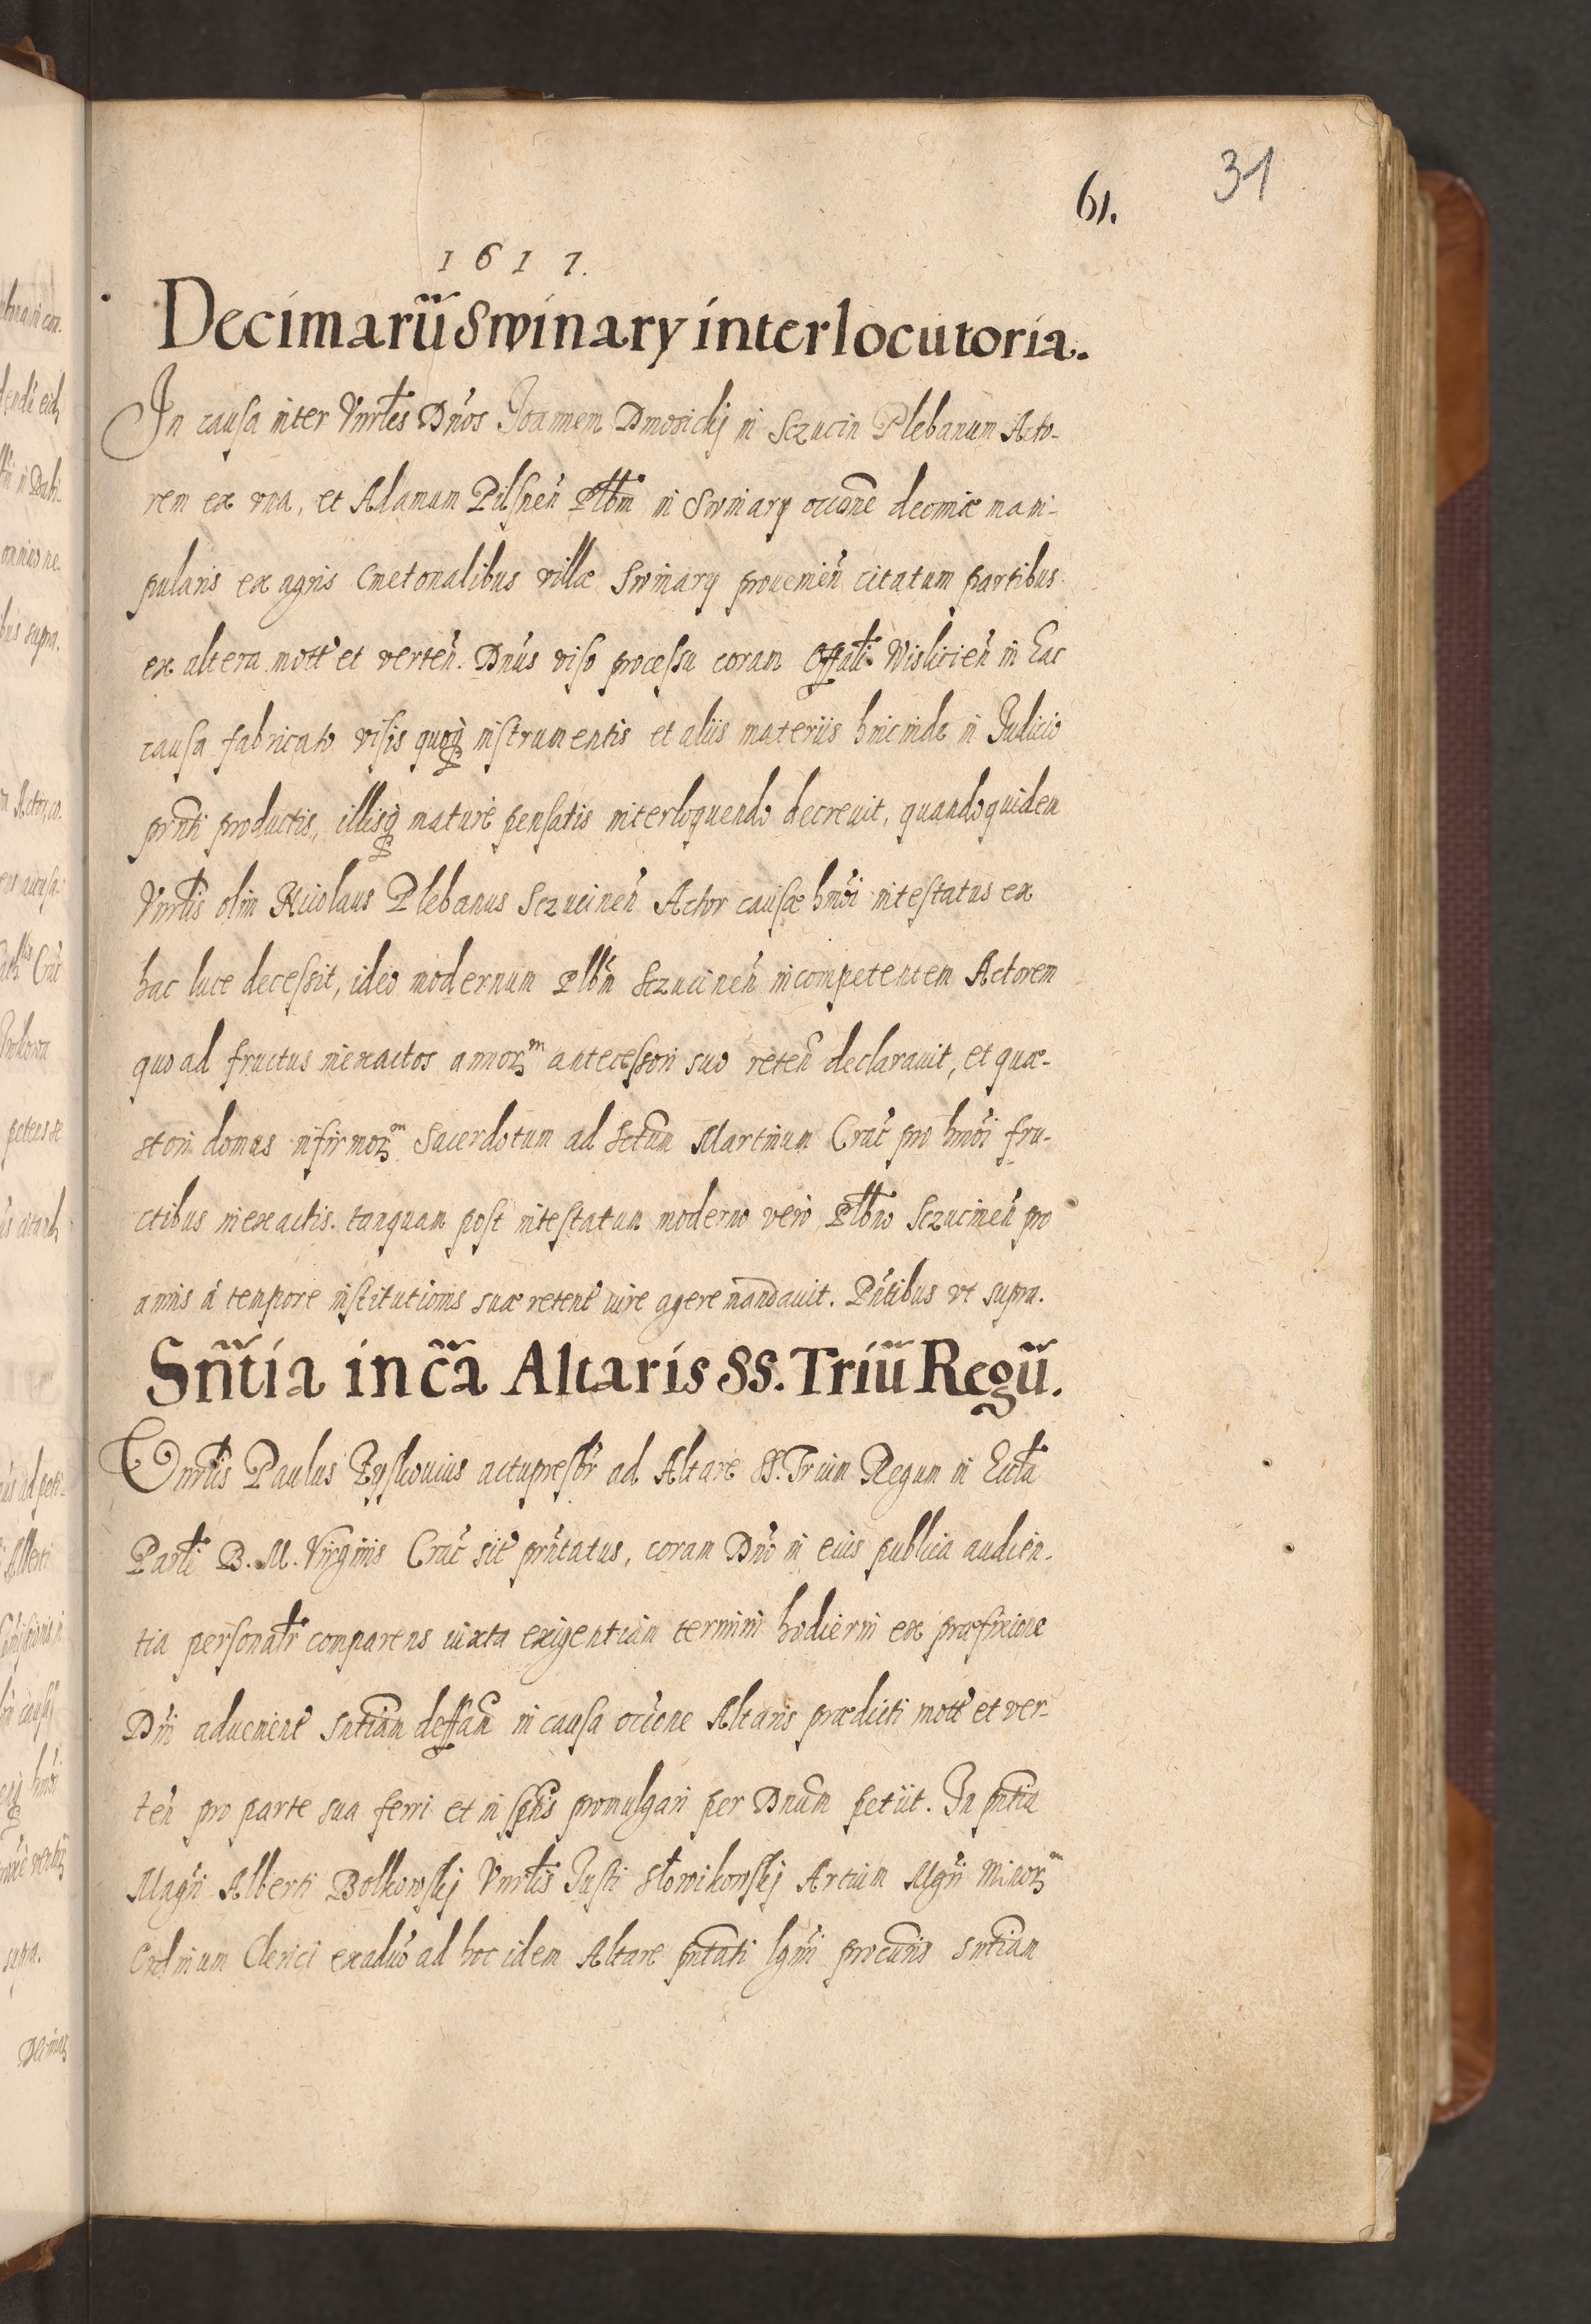 31
61.
1617.
Decimarũ Swinary interlocutoria.
In causa inter Vnrłes Dños Joannem Dmosickj in Sczucin Plebanum Acto-
rem ex vna, et Adamum Pilsneñ Płbm in Swinary occõne decimæ mani-
pularis ex agris Cmetonalibus villæ Swinary proueniеñ citatum partibus
ex altera mott et verteñ. Dñus viso processu coram Offali Wisliciеñ in Eac
causa fabricato visis quoq instrumentis et aliis materiis hincinde in Judicio
prñti productis, illisq maturè pensatis interloquendo decreuit, quandoquidem
Vnrłis olim Nicolaus Plebanus Sczucineñ Actor causæ hmõi intestatus ex
hac luce decessit, ideo modernum Płbm Sczucineñ incompetentem Actorem
quo ad fructus inexactos annoꝝm antecessori suo reteñ declarauit, et quæ-
stori domus infirmoꝝm Sacerdotum ad Sctum Martinum Crac̃ pro hmõi fru-
ctibus inexactis. tanquam post intestatum moderno verò Płbno Sczucineñ pro
annis à tempore institutionis suæ retent iure agere mandauit. Pñtibus vt supra.
Sñtia in cã Altaris SS. Triũ Regũ.
Vnrłis Paulus Ryskouius actupresbr ad Altare SS. Trium Regum in Eccła
Parłi B. M. Virginis Crac̃ sit prñtatus, coram Dño in eius publica audien-
tia personałr comparens iuxta exigentiam termini hodierni ex præfixione
Dñi aduenient sntiam deffam in causa occione Altaris prædicti mott et ver-
teñ pro parte sua ferri et in sptis promulgari per Dnum petiit. In pñtia
Magñi Alberti Bolkowskj Vnrłis Justi Słowikowskj Artium Mgri Minoꝝm
Ordinum Clerici exaduo ad hoc idem Altare pñtati lgmi procuris sntiam